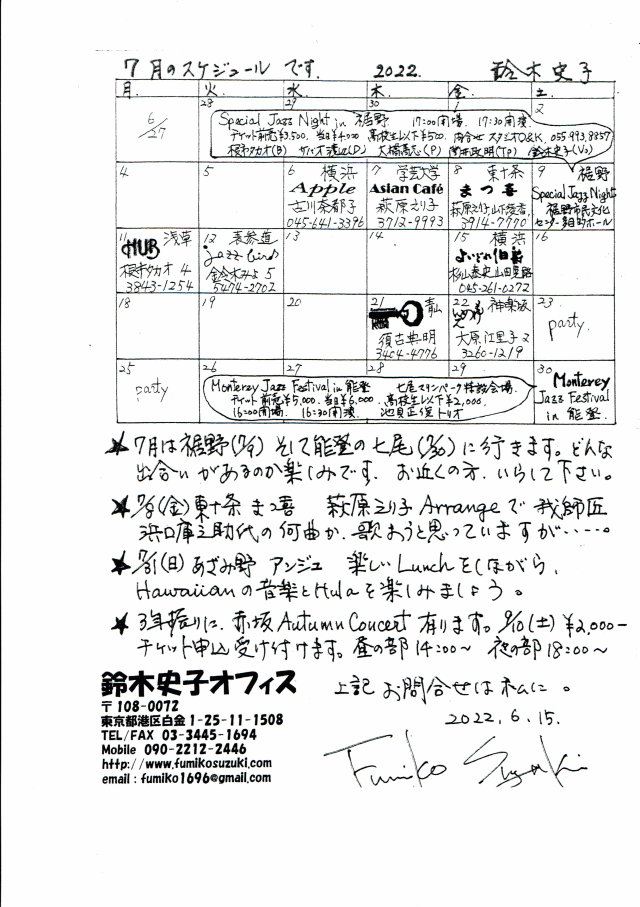 7月のスケジュール です. 2022. 鈴木史子
月. 火. 水. 木. 金. 土.
6/27 28 29 30 1 2
Special Jazz Night in 裾野 17:00開場. 17:30開演.
チケット前売¥3,500. 当日¥4,000 高校生以下¥500. 問合せ スタジオO&K. 055.993.8857
根市タカオ(B) 渡辺(D) 大橋高志(P) 岡井政明(TP) 鈴木史子(Vo)
4 5 6 横浜 7 学芸大学 8 東十条 9 裾野
Apple Asian Café まつ喜 Special Jazz Night
古川奈都子 萩原えり子 萩原えり子 裾野市民文化
045-641-3396 3712-9993 3914-7770 センター 多目的ホール
11 浅草 12 表参道 13 14 15 横浜 16
HUB Jazz Bird よいどれ伯爵
根市タカオ 4 鈴木みよ 5 杉山泰史
3843-1254 5474-2702 045-261-0272
18 19 20 21 青山 22 神楽坂 23
もりのいえ party.
須古典明 大原江里子 2
3404-4776 3260-1219
25 26 27 28 29 30
party Monterey Jazz Festival in 能登 七尾マリンパーク特設会場. Monterey
チケット前売¥5,000. 当日¥6,000. 高校生以下¥2,000. Jazz Festival
16:00開場. 16:30開演. 池貝正俊トリオ in 能登.
★ 7月は裾野(7/9) そして能登の七尾(7/30) に行きます。どんな
出合いがあるのか楽しみです. お近くの方. いらして下さい。
★ 7/8(金)東十条 まつ喜 萩原えり子Arrangeで 我師匠
浜口庫之助氏の何曲か. 歌おうと思っていますが・・・・。
★ 7/31(日)あざみ野 アンジュ 楽しいLunchをしながら,
Hawaiianの音楽とHulaを楽しみましょう。
★ 3年振りに. 赤坂Autumn Concert 有ります. 9/10(土) ¥2,000-
チケット申込受け付けます。昼の部 14:00~ 夜の部 18:00~
鈴木史子オフィス 上記お問合せは私に。
〒108-0072
東京都港区白金1-25-11-1508 2022.6.15.
TEL/FAX 03-3445-1694
Mobile 090-2212-2446
http://www.fumikosuzuki.com/
email：fumiko1696@gmail.com
Fumiko Suzuki